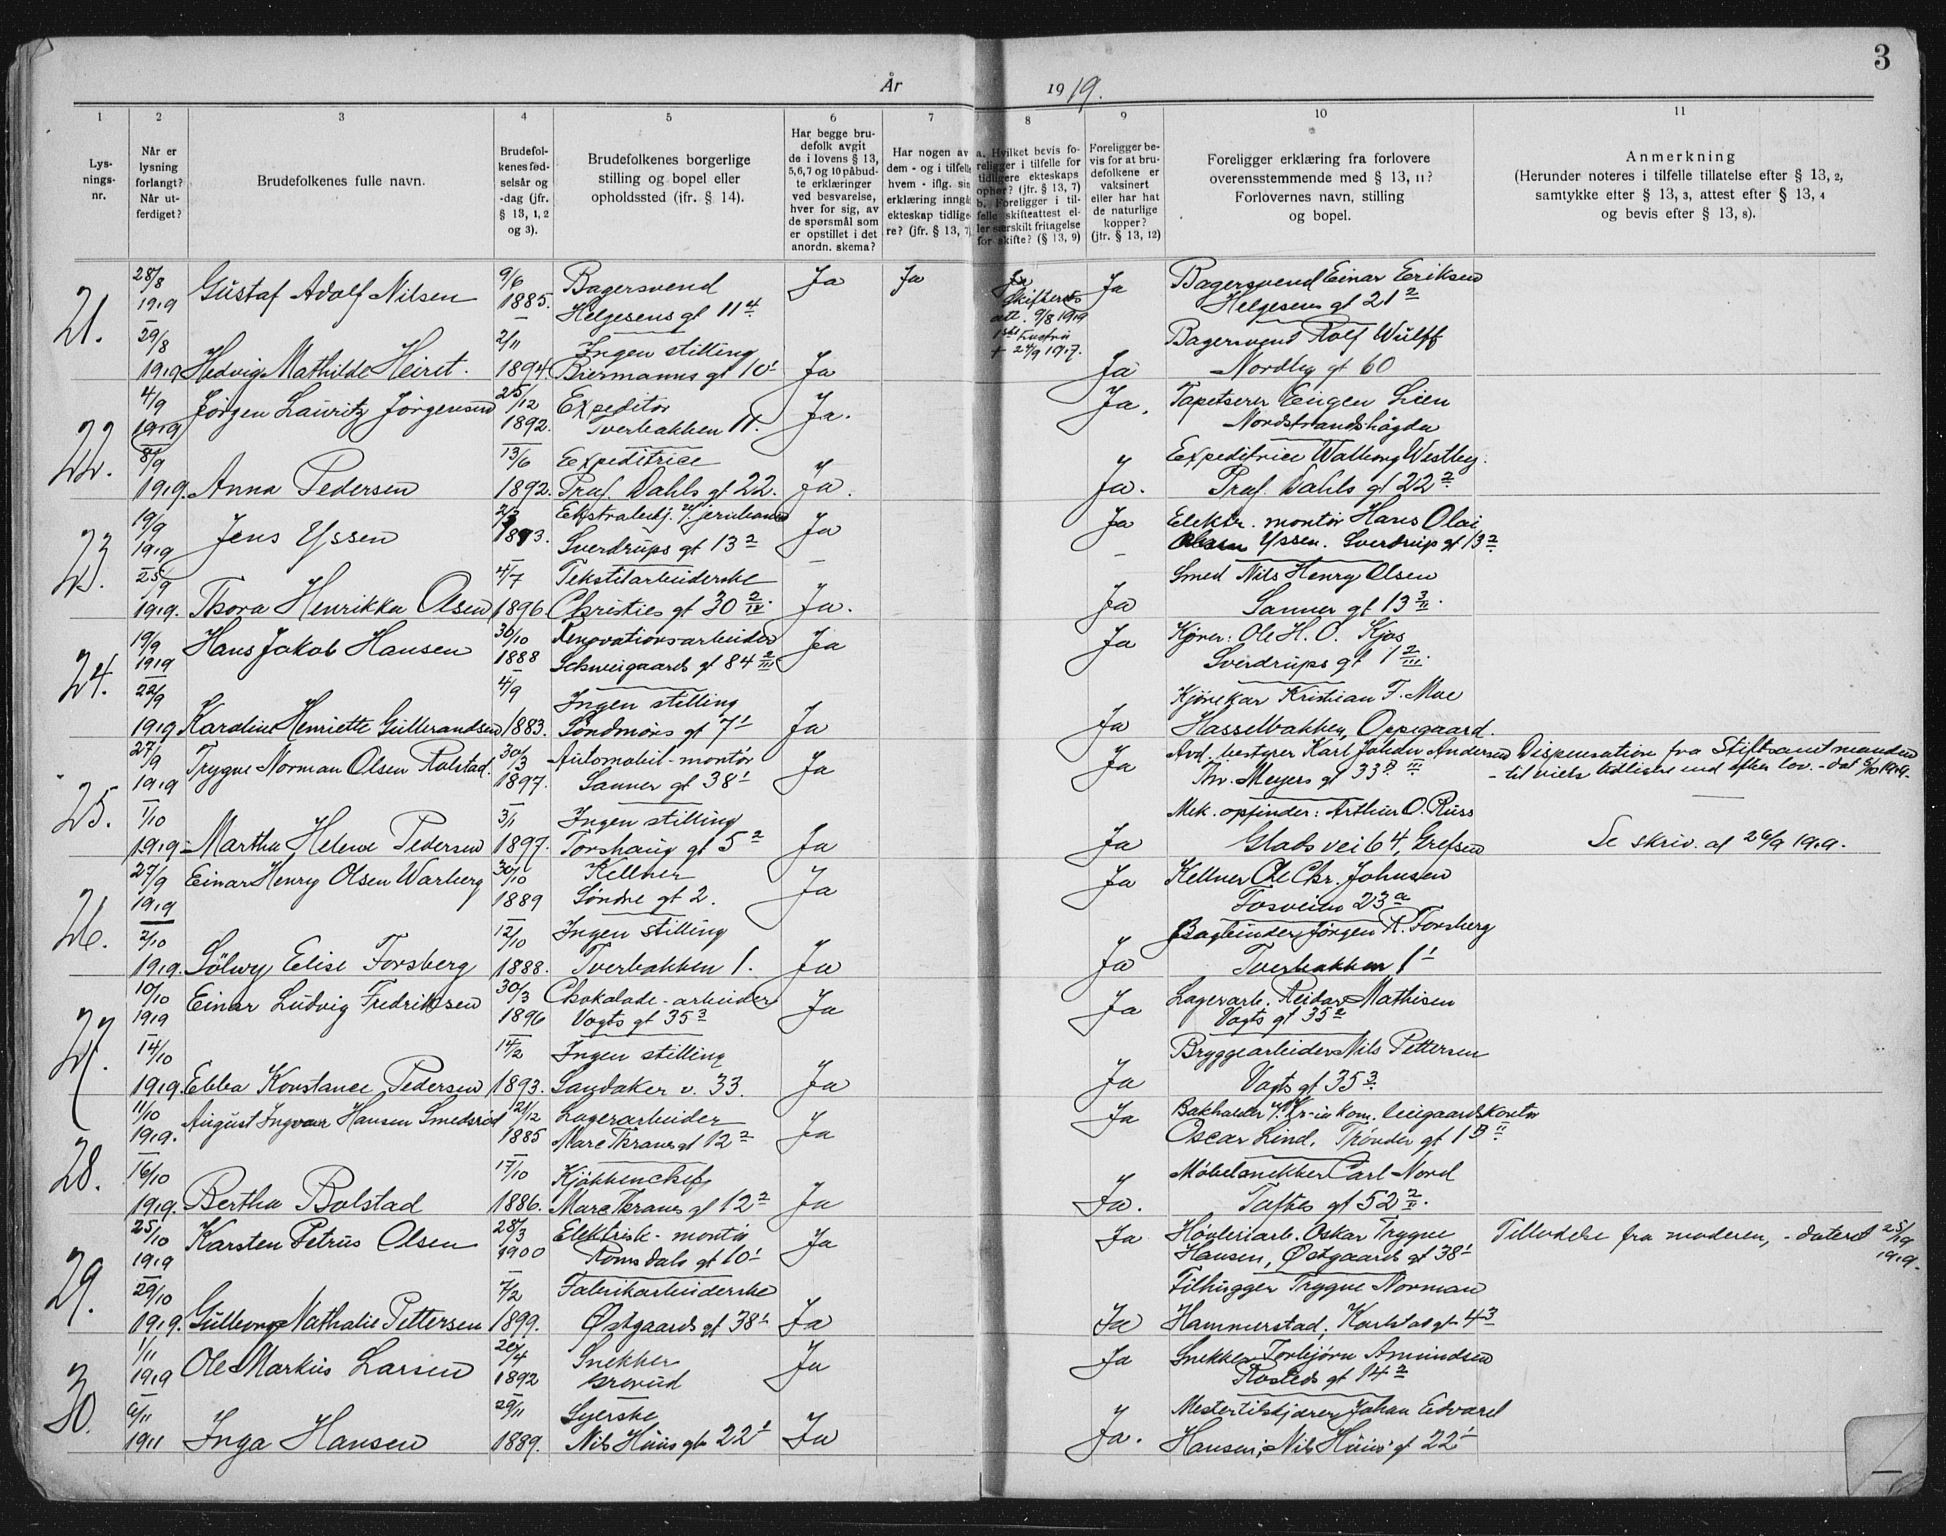 3
År 1919.
1 2 3 4 5 6 7 8 9 10 11
Lys-
nings-
nr.
Når er
lysning
forlangt?
Når ut-
ferdiget?
Brudefolkenes fulle navn.
Brudefol-
kenes fød-
selsår og
-dag (jfr.
§ 13, 1, 2
og 3).
Brudefolkenes borgerlige
stilling og bopel eller
opholdssted (ifr. § 14).
Har begge bru-
defolk avgit
de i lovens § 13,
5, 6, 7 og 10 påbud-
te erklæringer
ved besvarelse,
hver for sig, av
de spørsmål som
er opstillet i det
anordn. skema?
Har nogen av
dem - og i tilfelle
hvem - iflg. sin
erklæring inngå
ekteskap tidlige-
re? (jfr. § 13, 7)
a. Hvilket bevis fo-
religger i tilfelle for
tidligere ekteskaps
ophør? (jfr. § 13, 7)
b. Foreligger i til-
felle skifteattest el-
ler særskilt fritagelse
for skifte? (§ 13, 9)
Foreligger be-
vis for at bru-
defolkene er
vaksinert
eller har hat
de naturlige
kopper?
(jfr. § 13, 12)
Foreligger erklæring fra forlovere
overensstemmende med § 13, 11?
Forlovernes navn, stilling
og bopel.
Anmerkning
(Herunder noteres i tilfelle tillatelse efter § 13, 2,
samtykke efter § 13, 3, attest efter § 13, 4
og bevis efter § 13, 8).
21. 28/8 1919 Gustaf Adolf Nilsen 9/6 1885. Bagersvend Ja Ja Ja Bagersvend Einar Eriksen
Helgesens gt 11 4. Skifterets att. 9/8 1919 Helgesens gt 21 2
29/8 2/11 Ingen stilling + 24/9 1917. Bagersvend Rolf Wulff
1919 Hedvig Mathilde Heiret. 1894. Biermanns gt 10 1 Ja Ja Nordby gt 60
22. 4/9 1919 Jørgen Lauritz Jørgensen 25/12 1892. Expeditør Ja. Ja. Tapetserer Eugen Lien
Tverbakken 11. Nordstrandshøgda
8/9 13/6 Expeditrice Expeditrice Walborg Westby.
1919. Anna Pedersen 1892. Prof. Dahls gt 22. Ja. Ja. Prof. Dahls gt 22 2.
23. 19/9 1919 Jens Yssen 1893. Ekstrabetj. v. jernbanen Ja Ja Elektr. montør Hans Olai
Sverdrups gt 13 2 Yssen. Sverdrup gt 13 2
25/9 4/7 Tekstilarbeiderske Smed Nils Henry Olsen
1919. Thora Henrikka Olsen 1896. Christies gt 30 2/IV. Ja. Ja Sanner gt 13 3/II.
24. 19/9 1919 Hans Jakob Hansen 30/10 1888 Renovationsarbeider Ja Ja Kjører: Ole H. O. Kjos
Schweigaards gt 84 2/III Sverdrups gt 1 2/III.
22/9 4/9 Ingen stilling Kjørekar Kristian F. Moe
1919 Karoline Henriette Gulbrandsen 1883. Søndmørs gt 7 1 Ja Ja Hasselbakken, Oppegaard.
25. 27/9 1919 Trygve Norman Olsen Rolstad. 30/3 1897. Automobil-montør Ja Ja Avd. bestyrer Karl Johdor Andersen Dispensation fra Stiftsamtmanden
Sanner gt 38 1 Thv. Meyers gt 33 B III - til vielse tidligere end efter lov. - dat 6/10 1919.
1/10 3/1 Ingen stilling Mek. opfinder: Arthur O. Russ
1919- Martha Helene Pedersen 1897. Torshaug gt 5 2 Ja Ja Glads vei 64, Grefsen Se skriv. af 26/9 1919.
26. 27/9 1919 Einar Henry Olsen Warberg 30/10 1889 Kellner Ja Ja Kellner Ole Chr. Johnsen
Søndre gt 2. Fosveien 23 a
2/10 12/10 Ingen stilling Bagbinder Jørgen R. Forsberg
1919. Sölwy Elise Forsberg 1888. Tverbakken 1. Ja Ja Tverbakken 1 1
27. 10/10 1919 Einar Ludvig Fredriksen 30/3 1896 Chokolade-arbeider Ja Ja Lagerarb. Reidar Mathisen
Vogts gt 35 3 Vogts gt 35 2
14/10 14/2 Ingen stilling Bryggearbeider Nils Pettersen
1919. Ebba Konstance Pedersen 1893. Sandaker v. 33. Ja Ja Vogts gt 35 3.
28. 11/10 1919. August Ingvar Hansen Smedsrød 21/12 1885 Lagerarbeider Ja Ja Bokholder v. Kr-ia kom. leiegaardskontor
Marc Thranes gt 12 2 Oscar Lind, Trønder gt 1 B II.
16/10 17/10 Kjøkkenchef Møbelsnekker Carl Nord
1919. Bertha Bolstad 1886. Marc Thranes gt 12 2 Ja Ja. Toftes gt 52 2/II.
29. 25/10 1919 Karsten Petrus Olsen 28/3 1900 Elektrisk-montør Ja Ja Høvleriarb. Oskar Trygve Tilladelse fra moderen, - dateret 25/10 1919.
Romsdals gt 10 1 Hansen, Østgaards gt 38 1
29/10 7/2 Fabrikarbeiderske Filhugger Trygve Norman
1919. Gulborg Nathalie Pettersen 1899. Østgaards gt 38 1 Ja Ja Hammerstad, Karlstadgt 4 3
30. 1/11 1919 Ole Markus Larsen 20/4 1892 Snekker Ja Ja Snekker Torbjørn Amundsen
Grorud Rosteds gt 14 2
6/11 29/11 Syerske Mestertilskjærer Johan Edvard
1911 Inga Hansen 1889. Nils Huus gt 22 1 Ja Ja. Hansen, Nils Huus gt 22 1